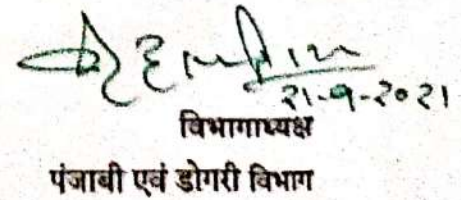 २१-९-२०२१
विभागाध्यक्ष
पंजाबी एवं डोगरी विभाग